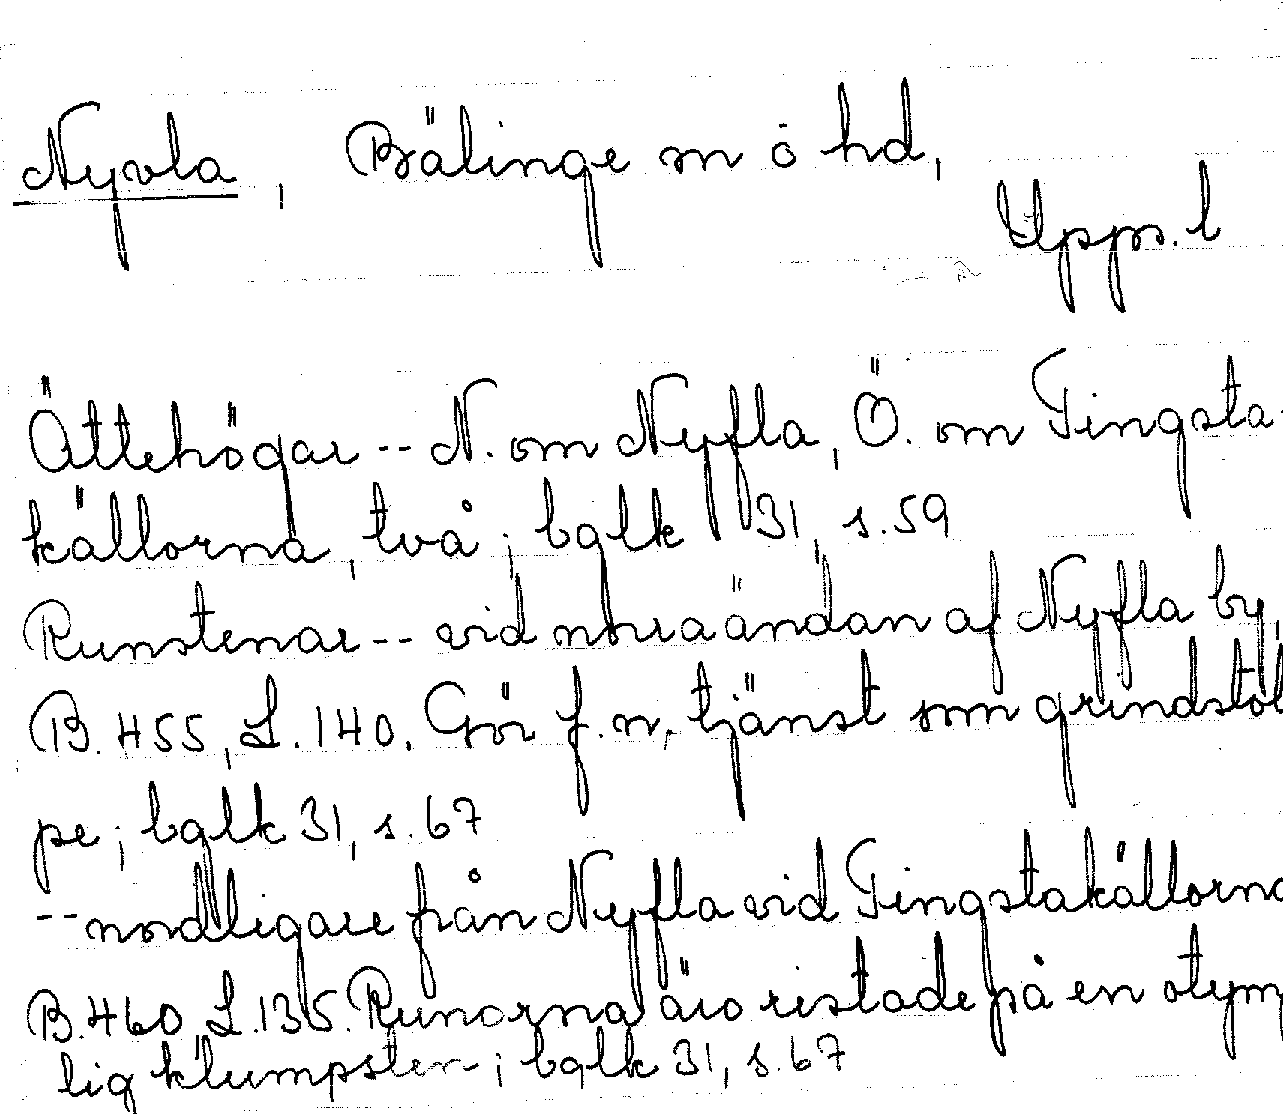 Nyvla, Bälinge sn o hd,
Upps. l
Ättehögar -- N. om Nyfla, Ö. om Tingsta-
källorna, två; bglk 31, s. 59
Runstenar -- vid norra ändan af Nyfla by,
B. 455, L. 140. Gör f. n. tjänst som grindstol
pe; bglk 31, s. 67
-- nordligare från Nyfla vid Tingstakällorna
B. 460, L. 135. Runorna äro ristade på en otymp
lig klumpsten; bglk 31, s. 67